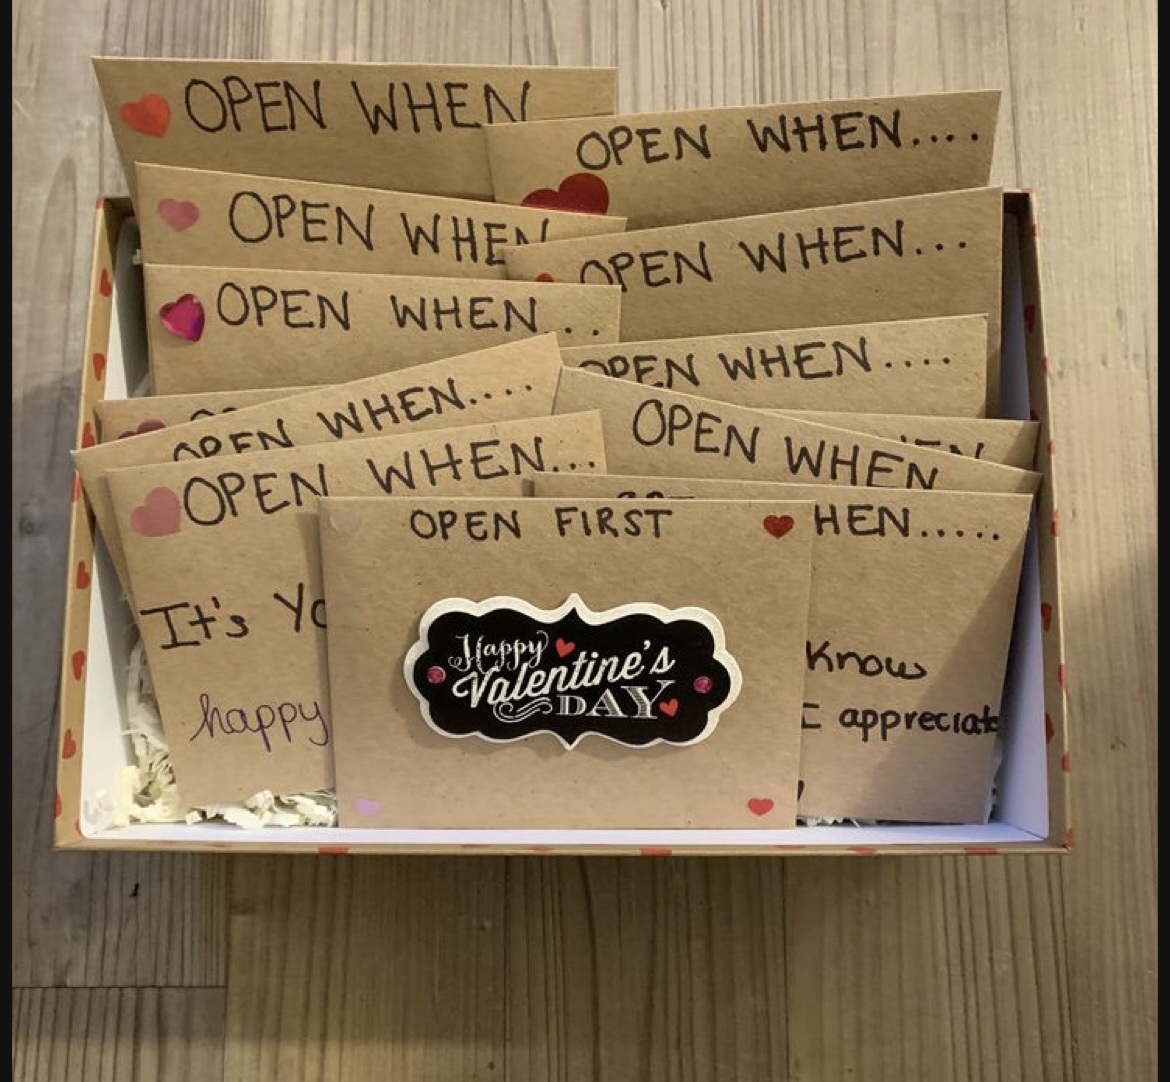 OPEN WHEN
OPEN WHEN....
OPEN WHEN
OPEN WHEN...
OPEN WHEN...
OPEN WHEN....
OPEN WHEN....
OPEN WHEN
OPEN WHEN...
OPEN FIRST
HEN.....
It's
know
happy
I appreciate
Happy
Valentine's
DAY